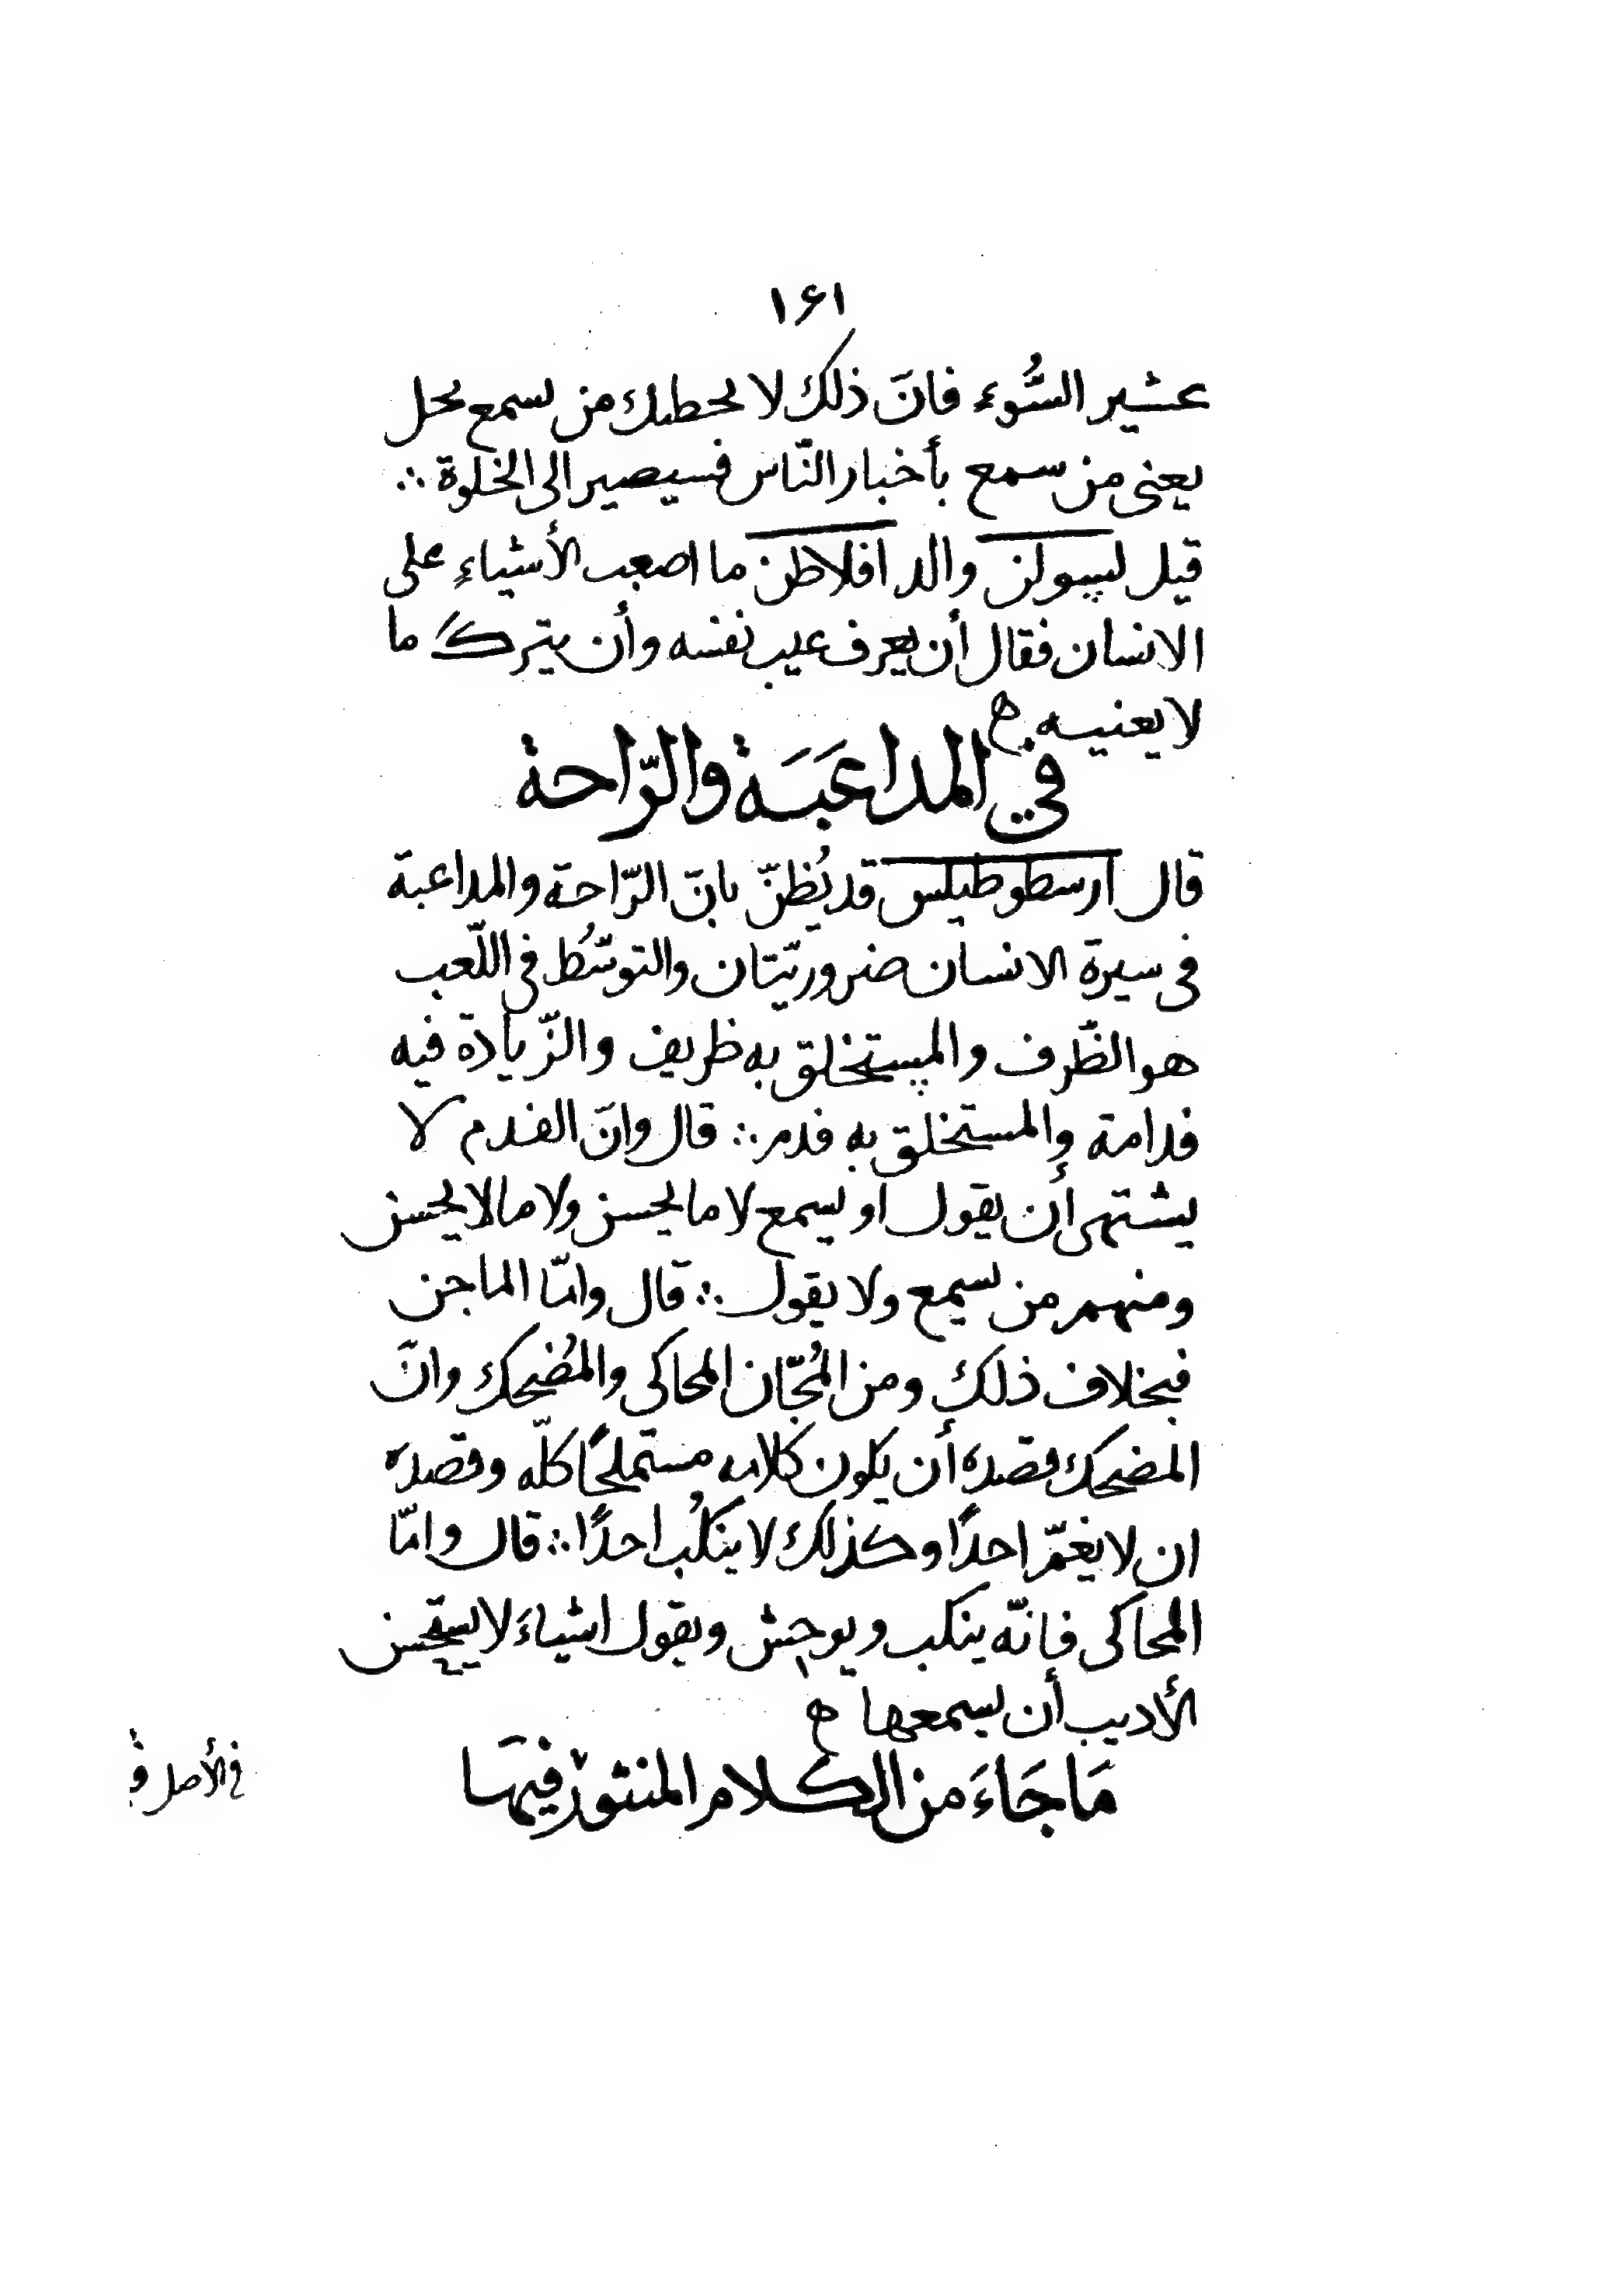 ۱۶۱
عشير السُّوء فانّ ذلك لا يحطك من يسمع يخل
يعنى من سمع بأخبار النّاس فسيصير الى الخلوة ∴
قيل والد افلاطن ما اصعب الأشياءِ على
الانسان فقال أن يعرف عيب نفسه وأن يترك ما
لا يعنيه ه
في المداعَبَة والرّاحة
قال ارسطوطيلس قد يُظنّ بانّ الرّاحة والمداعبة
فى سيرة الانسان ضروريّتان والتوسّط فى اللّعب
هو الظّرف والمستخلق به ظريف والزّيادة فيه
فدامة والمستخلق به فدم ∴ قال وانّ الفدم لا
يشتهى أن يقول او يسمع لا ما يحسن ولا ما لا يحسن
ومنهم من يسمع ولا يقول ∴ قال وامّا الماجن
فبخلاف ذلك ومن المُجّان المحاكى والمُضحك وانّ
المضحك قصده أن يكون كلامه مستملحًا كلّه وقصده
ان لا يغمّ احدًا وكذلك لا ينكُب احدًا ∴ قال وامّا
المحاكى فانّه ينكب ويوحش ويقول اشياءَ لا يستحسن
الأديب أن يسمعها ه
مَا جَاءَ من الكلام المنثور فيهَا
فى الأصل